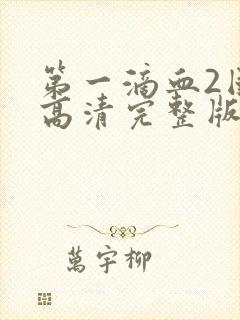 第一滴血2国
高清完整版
萬宇柳